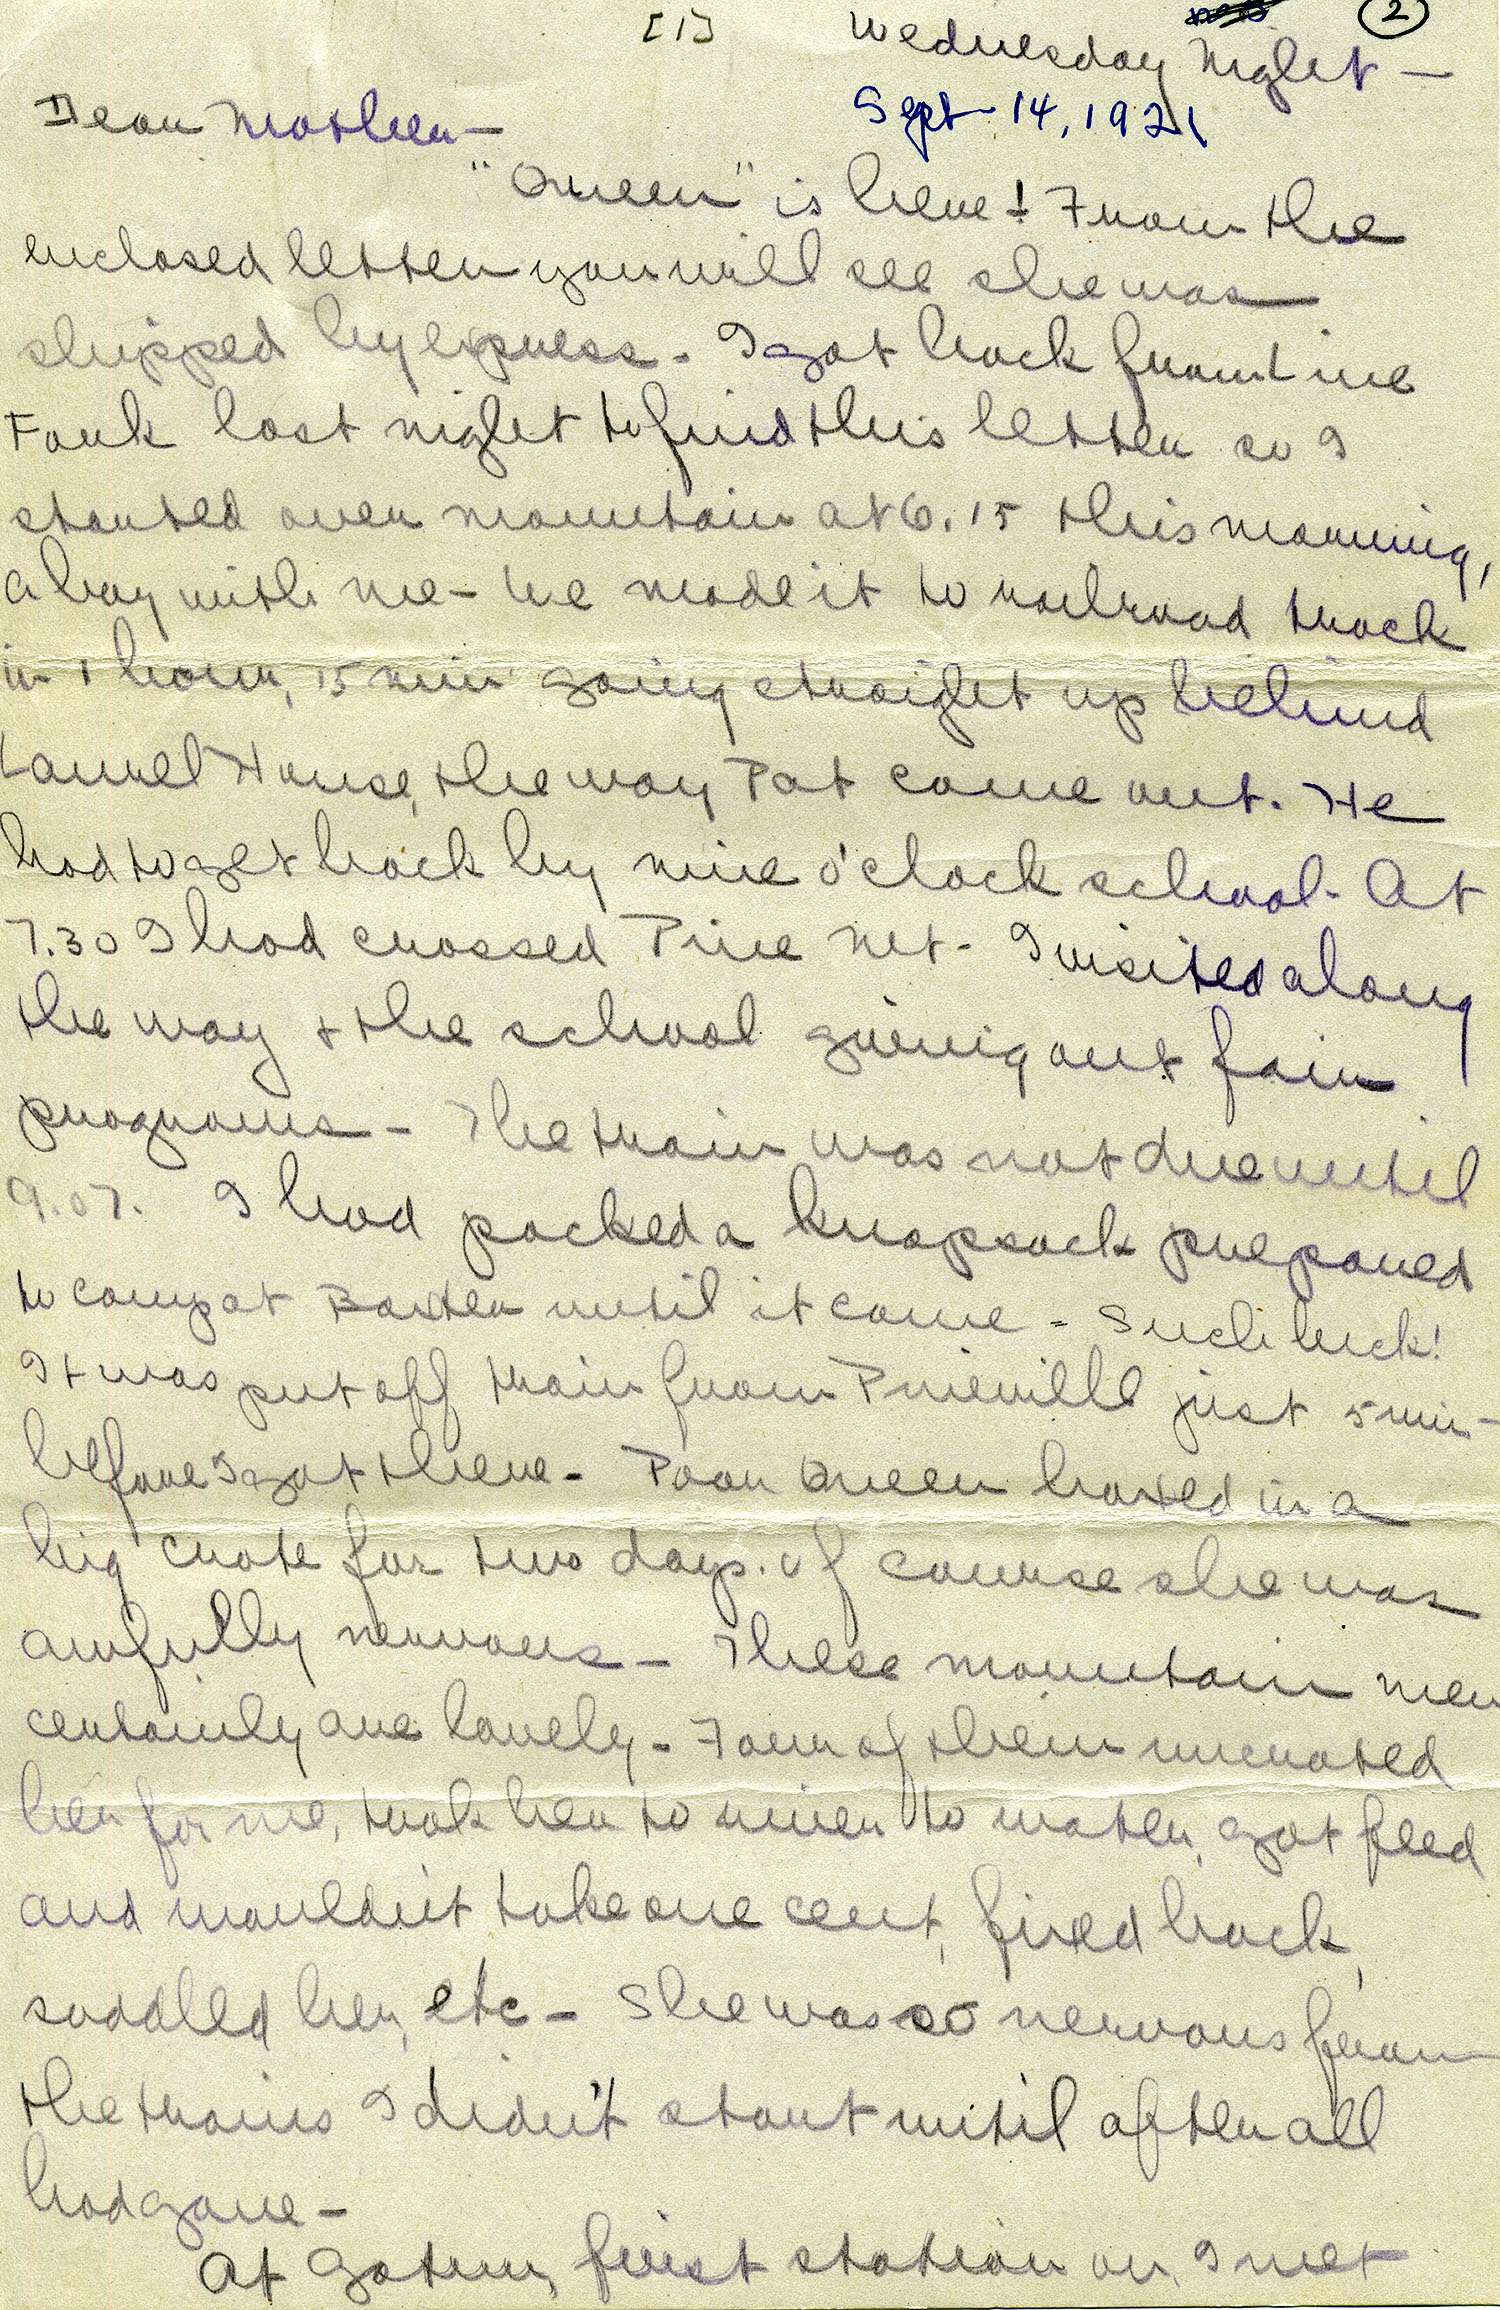 [1]
②
Wednesday Night —
Sept 14, 1921
Dear Mother —
"Queen" is here! From the
enclosed letter you will see she was
shipped by express - I got back from Line
Fork last night to find this letter so I
started over mountain at 6.15 this morning,
a boy with me - We made it to railroad track
in 1 hour, 15 min going straight up behind
Laurel House, the way Pat came out. He
had to get back by nine o'clock school. At
7.30 I had crossed Pine Mt - I visited along
the way & the school giving out fair
programs - The train was not due until
9.07. I had packed a knapsack prepared
to camp at Baxter until it came - Such luck!
It was put off train from Pineville just 5 min -
before I got there - Poor Queen boxed in a
big crate for two days. Of course she was
awfully nervous - These mountain men
certainly are lovely - Four of them uncrated
her for me, took her to river to water, got feed
and wouldn't take one cent, fixed back,
saddled her, etc - She was so nervous from
the trains I didn't start until after all
had gone -
At Gatun, first station on, I met